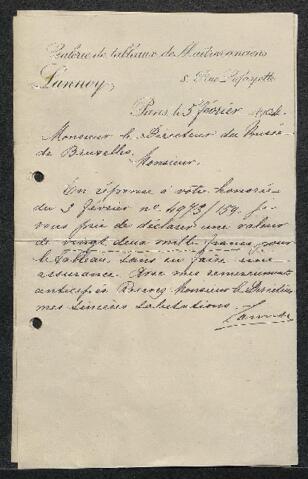 Galerie de tableaux de Maîtres anciens
Lannoy
8, Rue Lafayette
Paris, le 5 février
Monsieur le Directeur du Musée
de Bruxelles,
Monsieur.
En réponse à votre honorée
du 3 février n° 4973/159. je
vous prie de déclarer une valeur
de vingt deux mille francs pour
le tableau, sans en faire une
assurance. Avec mes remerciements
anticipés Recevez Monsieur le Directeur
mes sincères salutations.
Lannoy